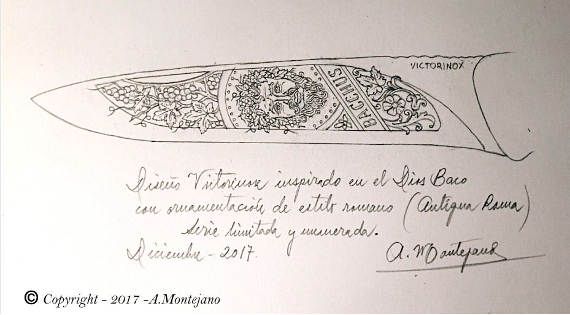 VICTORINOX
BACCHUS
Diseño Victorinox inspirado en el Dios Baco
con ornamentación de estilo romano (Antigua Roma)
Serie limitada y numerada.
Diciembre - 2017.
A. Montejano
© Copyright - 2017 -A.Montejano